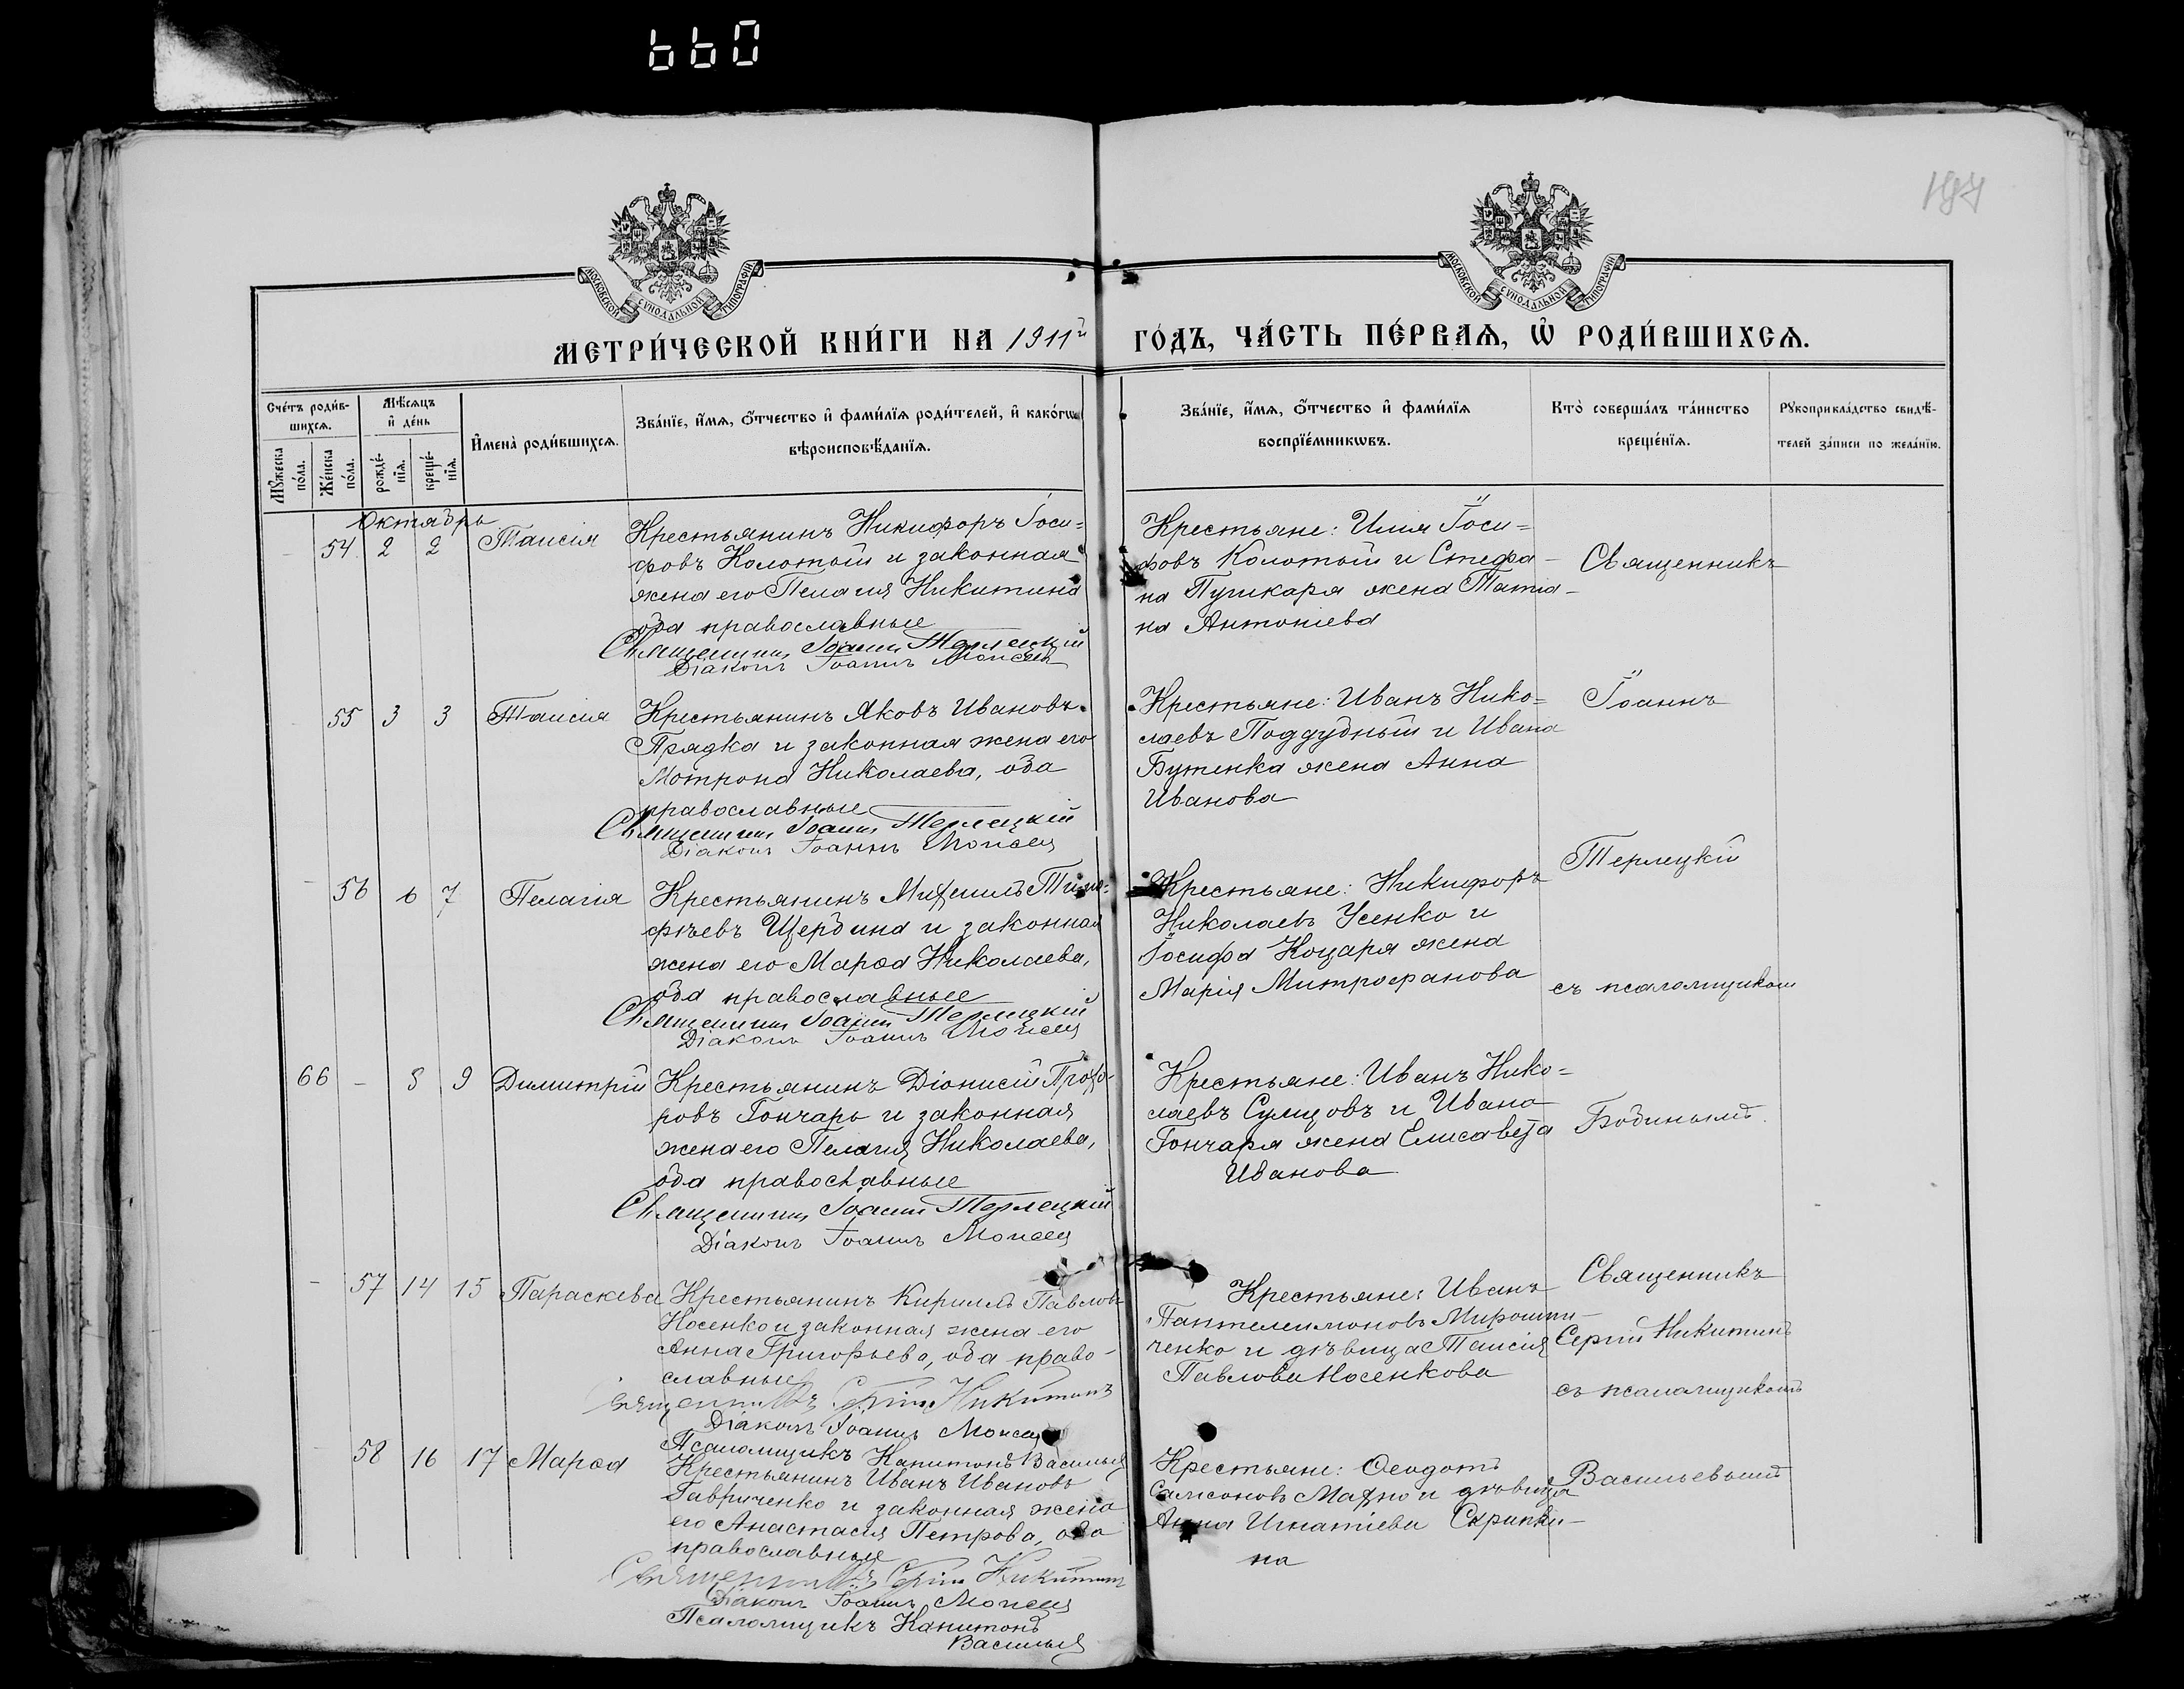 660
194
МОСКОВСКОЙ СУНОДАЛЬНОЙ ТИПОГРАФІИ
МОСКОВСКОЙ СУНОДАЛЬНОЙ ТИПОГРАФІИ
МЕТРИ́ЧЕСКОЙ КНИ́ГИ НА 1911й ГО́ДЪ, ЧА́СТЬ ПЕ́РВАѦ, Ѡ҆ РОДИ́ВШИХСѦ.
Сче́тъ роди́в-
шихсѧ.
Мꙋжеска по́ла.
Же́нска по́ла.
Мѣ́сѧцъ
и҆ де́нь
рожде́-
нїѧ.
креще́-
нїѧ.
И҆мена̀ роди́вшихсѧ.
Зва́нїе, и҆́мѧ, ѻ҆́тчество и҆ фами́лїѧ роди́телей, и҆ како́гѡ
вѣроисповѣ́данїѧ.
Зва́нїе, и҆́мѧ, ѻ҆́тчество и҆ фами́лїѧ
воспрїе́мникѡвъ.
Кто̀ соверша́лъ та́инство
креще́нїѧ.
Рꙋкоприкла́дство свидѣ́-
телей за́писи по жела́нїю.
Октябрь
- 54 2 2 Таисія
Крестьянинъ Никифоръ Іоси=
фовъ Колотый и законная
жена его Пелагія Никитина
оба православные
Священникъ Іоаннъ Терлецкій
Діаконъ Іоаннъ Моисей
Крестьяне: Илія Іоси=
фовъ Колотый и Стефа-
на Пушкаря жена Татіа-
на Антоніева
Священникъ
55 3 3 Таисія
Крестьянинъ Яковъ Ивановъ
Прядка и законная жена его
Мотрона Николаева, оба
православные
Священникъ Іоаннъ Терлецкій
Діаконъ Іоаннъ Моисей
Крестьяне: Иванъ Нико=
лаевъ Поддубный и Ивана
Бутенка жена Анна
Иванова
Іоаннъ
Терлецкій
- 56 6 7 Пелагія
Крестьянинъ Михаилъ Тимо=
фѣевъ Щербина и законная
жена его Марѳа Николаева,
оба православные
Священникъ Іоаннъ Терлецкій
Діаконъ Іоаннъ Моисей
Крестьяне: Никифоръ
Николаевъ Усенко и
Іосифа Коцаря жена
Марія Митрофанова
съ псаломщикомъ
66 - 8 9 Димитрій
Крестьянинъ Діонисій Прохо-
ровъ Гончаръ и законная
жена его Пелагія Николаева,
оба православные
Священникъ Іоаннъ Терлецкій
Діаконъ Іоаннъ Моисей
Крестьяне: Иванъ Нико=
лаевъ Сулицовъ и Ивана
Гончаря жена Елисавета
Иванова
Бодинымъ.
- 57 14 15 Параскева
Крестьянинъ Кириллъ Павловъ
Носенко и законная жена его
Анна Григорьева, оба право-
славные
Священникъ Сергій Никитинъ
Діаконъ Іоаннъ Моисей
Псаломщикъ Капитонъ Васильев
Крестьяне: Иванъ
Пантелеимоновъ Мирошни-
ченко и дѣвица Таисія
Павлова Носенкова
Священникъ
Сергій Никитинъ
съ псаломщикомъ
Васильевымъ
- 58 16 17 Марѳа
Крестьянинъ Иванъ Ивановъ
Гавриченко и законная жена
его Анастасія Петрова, оба
православные
Священникъ Сергій Никитинъ
Діаконъ Іоаннъ Моисей
Псаломщикъ Капитонъ
Васильев
Крестьяне: Ѳеодотъ
Самсоновъ Махно и дѣвица
Анна Игнатіева Скрипки-
на